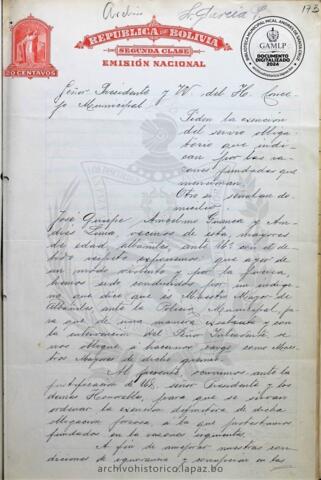 Archivo S. García P. 173
REPUBLICA DE BOLIVIA
SEGUNDA CLASE
EMISIÓN NACIONAL
20 CENTAVOS
GAMLP
DOCUMENTO
DIGITALIZADO
2024
Señor Presidente y VV. del H. Conce-
jo Municipal.
Piden la exención
del servicio obliga-
torio que indi-
can por las ra-
zones fundadas que
mencionan.
Otro sí señalan do-
micilio.
José Quispe Anselmo Guanca y An-
drés Lima, vecinos de esta, mayores
de edad, albañiles, ante Ud. con el de-
bido respeto exponemos: que ayer de
un modo violento y por la fuerza,
hemos sido conducidos por un indíge-
na que dice que es Maestro Mayor de
Albañiles ante la Policía Municipal, pa-
ra que de una manera y con
la intervención del Señor Intendente, se
nos obligue á hacernos cargo como Maes-
tros Mayores de dicho gremio.
Al presente, ocurrimos ante la
justificación de Ud, señor Presidente y los
demás Honorables, para que se sirvan
ordenar la exención definitiva de dicha
obligación forzosa, á la que protestamos
fundados en las razones siguientes.
A fin de mejorar nuestras con-
diciones de ignorancia y en las
archivohistorico.lapaz.bo